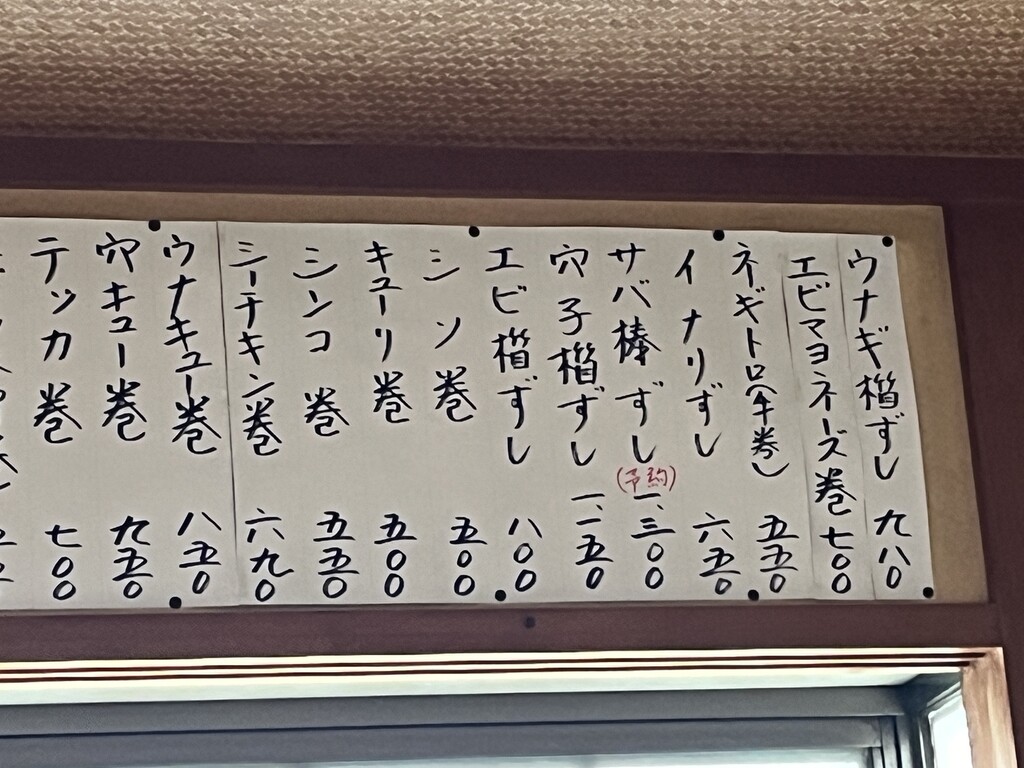 ウナギ楷ずし 九八〇
エビマヨネーズ巻 七〇〇
ネギトロ(手巻) 五五〇
イナリずし 六五〇
サバ棒ずし(予約) 一、三〇〇
穴子楷ずし 一、一五〇
エビ楷ずし 八〇〇
シソ巻 五〇〇
キューリ巻 五〇〇
シンコ巻 五五〇
シーチキン巻 六九〇
ウナキュー巻 八五〇
穴キュー巻 九五〇
テッカ巻 七〇〇